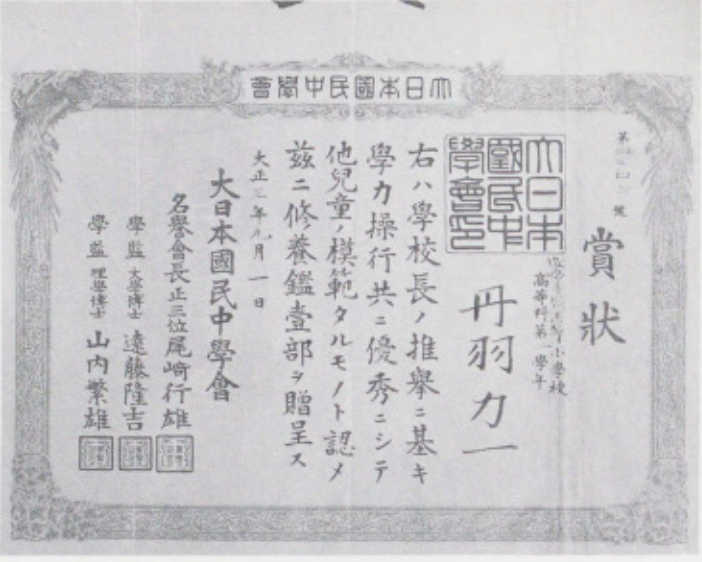 大日本國民中學會
第 號
賞狀
小學校
高等科第 學年
丹羽力一
大日本國民中學會印
右ハ學校長ノ推擧ニ基キ
學力操行共ニ優秀ニシテ
他兒童ノ模範タルモノト認メ
玆ニ修養鑑壹部ヲ贈呈ス
大正 年九月一日
大日本國民中學會
名譽會長正三位尾崎行雄
學監 文學博士 遠藤隆吉
學監 理學博士 山内繁雄